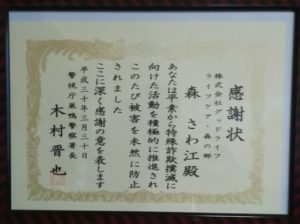 感謝状
株式会社グッドライフ
ライフケア・森の郷
森 さわ江殿
あなたは平素から特殊詐欺撲滅に
向けた活動を積極的に推進され
このたび被害を未然に防止
されました
ここに深く感謝の意を表します
平成三十年三月三十日
警視庁巣鴨警察署長
木村晋也